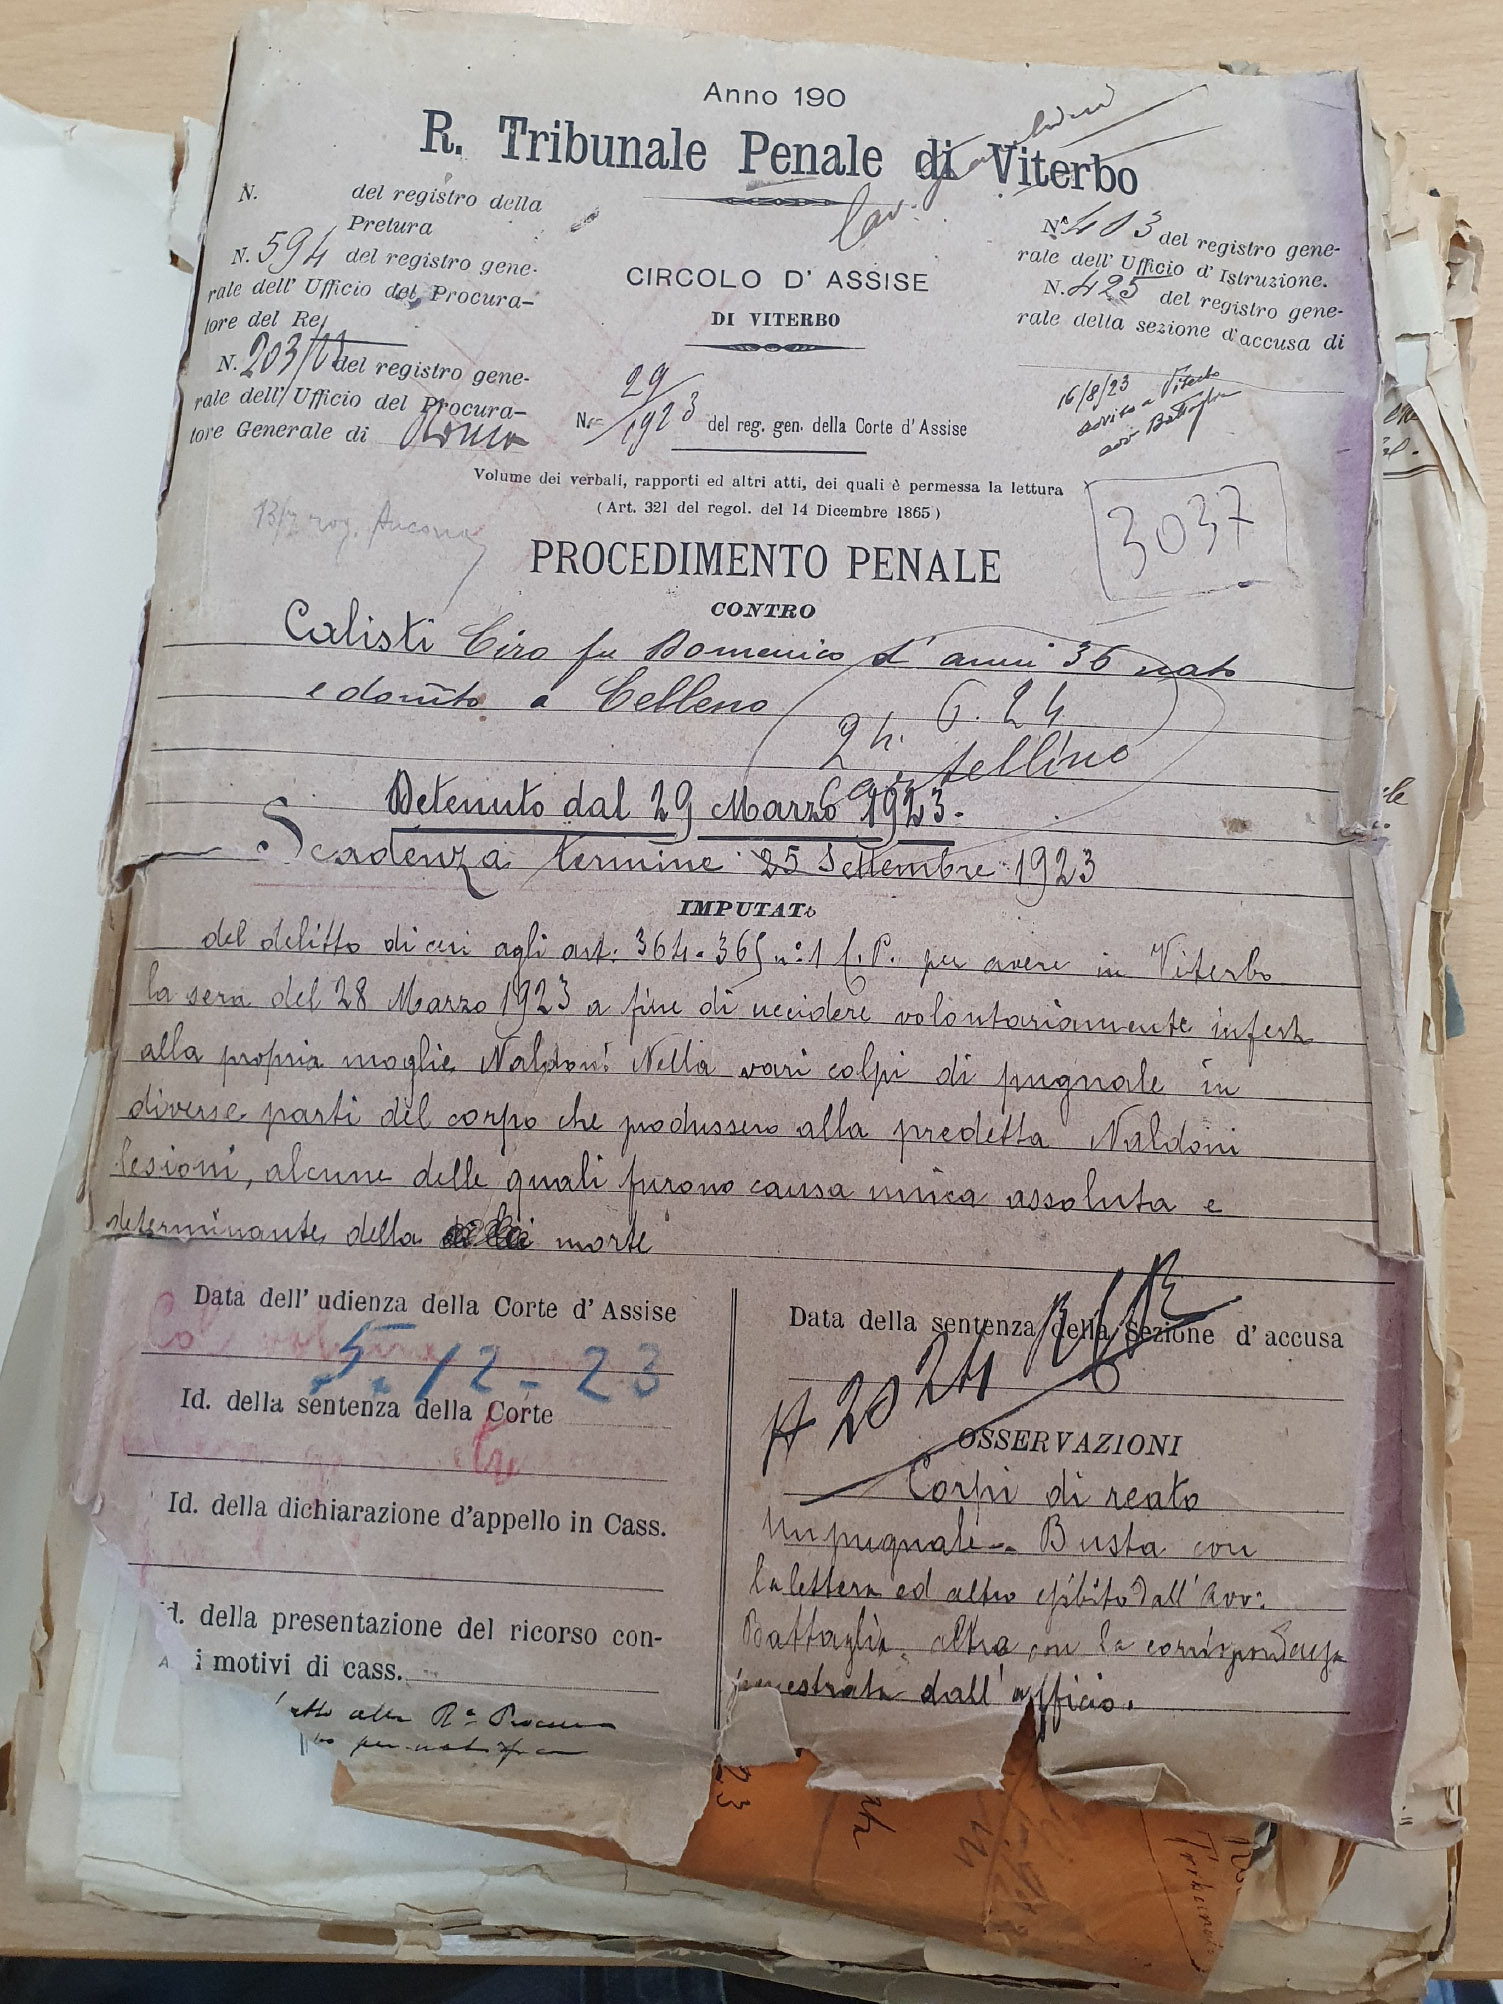 Anno 190
R. Tribunale Penale di Viterbo
Cav.
N. del registro della
Pretura
N. 594 del registro gene-
rale dell' Ufficio del Procura-
tore del Re
N. 203/ del registro gene-
rale dell' Ufficio del Procura-
tore Generale di Roma
CIRCOLO D' ASSISE
DI VITERBO
N. 29/1923 del reg. gen. della Corte d'Assise
N. 403 del registro gene-
rale dell' Ufficio d' Istruzione.
N. 425 del registro gene-
rale della sezione d'accusa di
16/8/23 Viterbo
avv. Battaglia
Volume dei verbali, rapporti ed altri atti, dei quali è permessa la lettura
(Art. 321 del regol. del 14 Dicembre 1865)
3037
Ancona
PROCEDIMENTO PENALE
CONTRO
Calisti Ciro fu Domenico d' anni 36 nato
e domto a Celleno
24. 6. 24
Cartellino
Detenuto dal 29 Marzo 1923.
Scadenza termine 25 Settembre 1923
IMPUTATo
del delitto di cui agli art. 364. 365 n. 1 C. P. per avere in Viterbo
la sera del 28 Marzo 1923 a fine di uccidere volontariamente inferti
alla propria moglie Naldoni Nella vari colpi di pugnale in
diverse parti del corpo che produssero alla predetta Naldoni
lesioni, alcune delle quali furono causa unica assoluta e
determinante della morte
Data dell' udienza della Corte d' Assise
5. 12 - 23
Id. della sentenza della Corte
Id. della dichiarazione d'appello in Cass.
Id. della presentazione del ricorso con-
i motivi di cass.
alla Ra Procura
per
Data della sentenza della Sezione d' accusa
A 20 24
OSSERVAZIONI
Corpi di reato
Un pugnale - Busta con
la lettera ed altro esibito dall' Avv:
Battaglia, altra con la corrispondenza
sequestrata dall' ufficio.
23